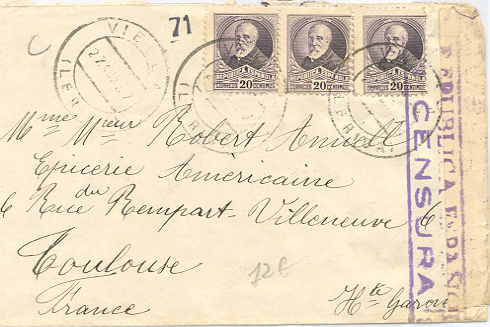 C
VIELLA
(LERIDA)
71
REPUBLICA ESPAÑOLA
CORREOS 20 CENTIMOS
REPUBLICA ESPAÑOLA
CORREOS 20 CENTIMOS
REPUBLICA ESPAÑOLA
CORREOS 20 CENTIMOS
REPUBLICA ESPAÑOLA
CENSURA
Mme Mieur Robert
Epicerie Américaine
6 Rue du Rempart-Villeneuve 6
Toulouse
France
Hte Garon
12€